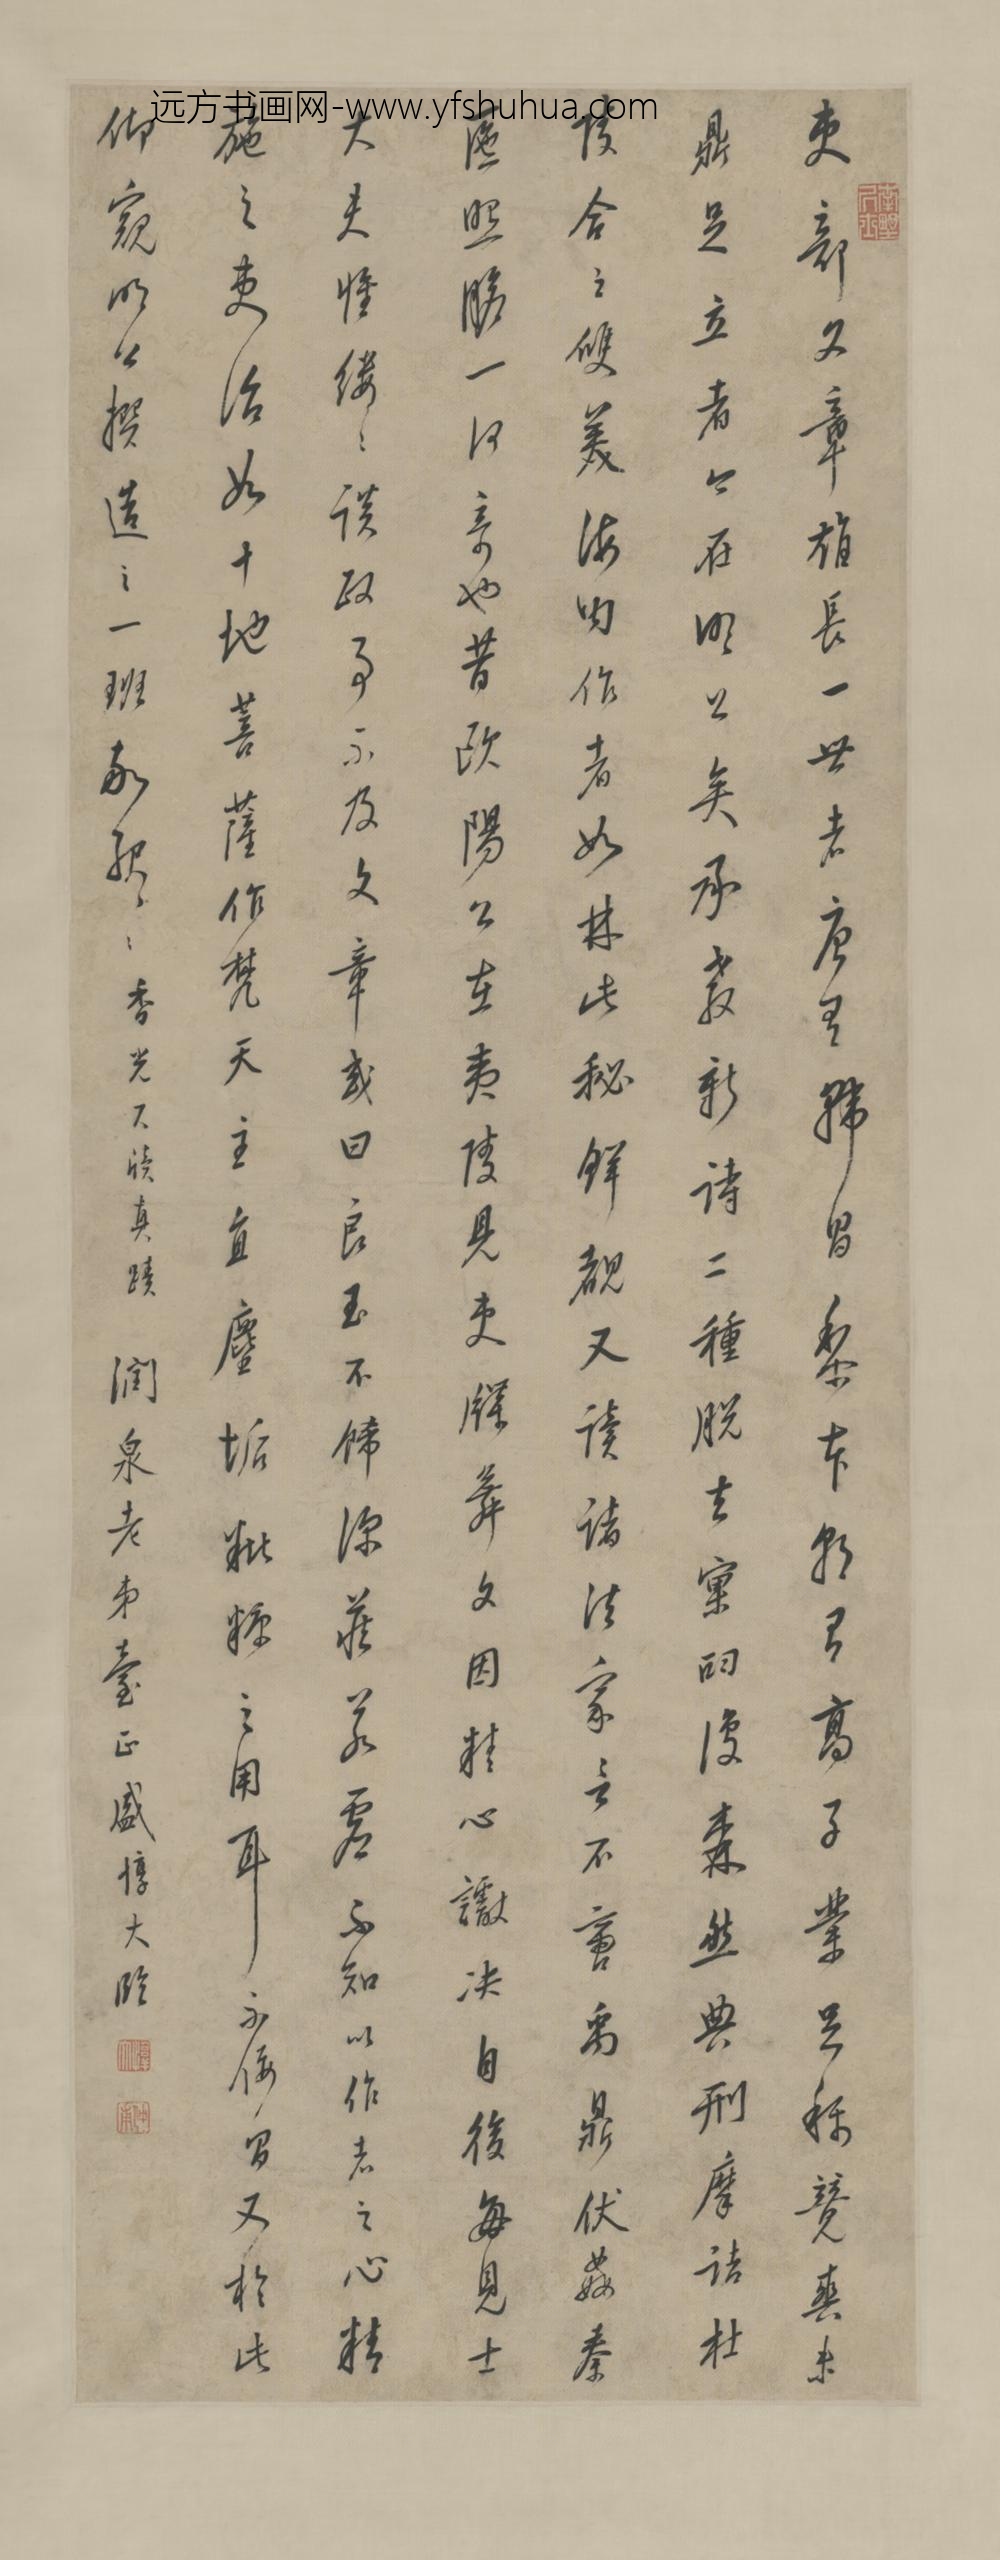 远方书画网-www.yfshuhua.com
吏部文章雄長一世者唐有韓昌黎本朝有高子業足稱競爽未
鼎足立者今在明公矣承教新詩二種脫去窠臼復森然典刑摩詰杜
陵合之雙美海内作者如林此秘鮮覩又讀諸法家言不啻禹鼎伏姦秦
照膽一何奇也昔歐陽公在夷陵見吏牘舞文因精心讞决自後每見士
大夫惟縷々談政事不及文章或曰良玉不
深藏若虛不知以作者之心精
施之吏治如十地菩薩作梵天主直塵垢粃糠之用耳不佞昌又於此
仰窺明公撰造之一班敬服々々香光尺牘真蹟 潤泉老弟臺正盛惇大臨